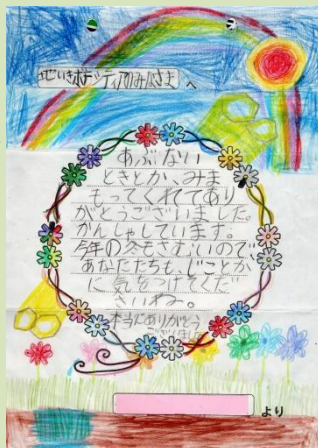 ちいきボランティアのみなさま へ
あぶない
ときとか、みま
もってくれてあり
がとうございました。
かんしゃしています。
今年の冬もさむいので、
あなたたちも、じことか
に気をつけてくだ
さいね。
本当にありがとう
ございました
より